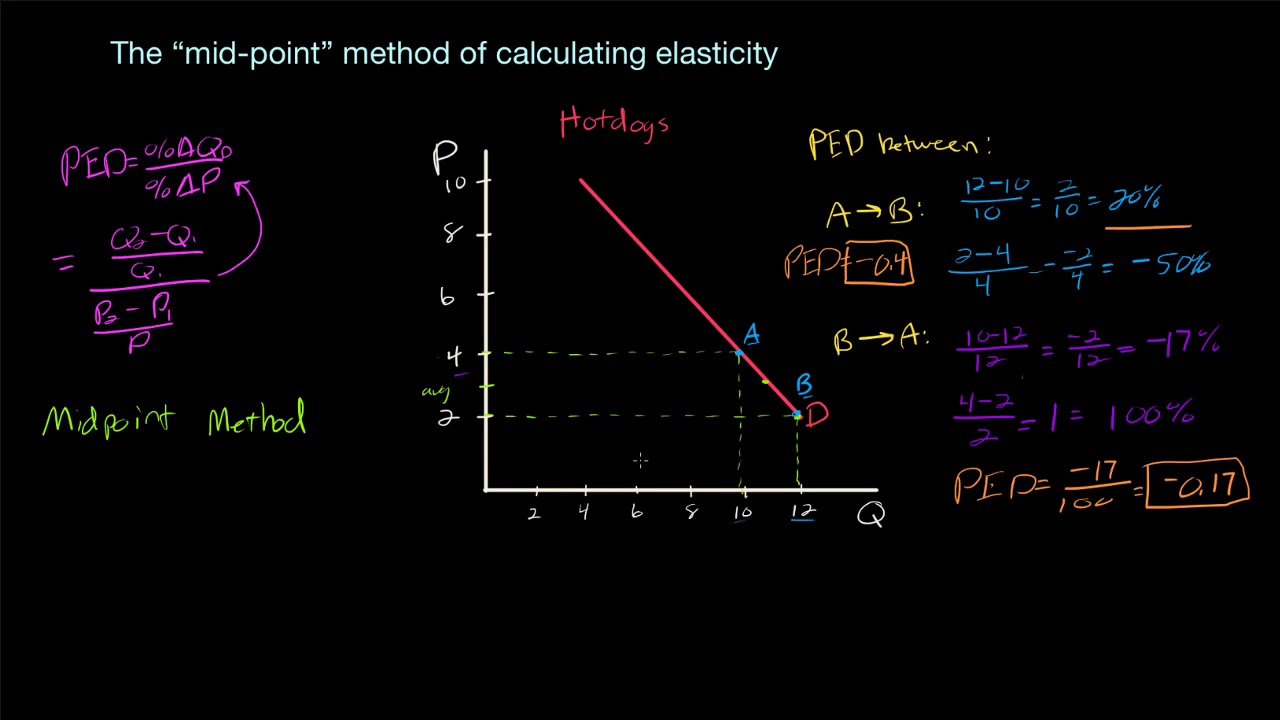 The “mid-point” method of calculating elasticity
PED = %ΔQD / %ΔP
= (Q2 - Q1 / Q1) / (P2 - P1 / P)
Midpoint Method
Hotdogs
P
10
8
6
4
avg
2
A
B
D
2 4 6 8 10 12 Q
PED between:
A → B: 12-10 / 10 = 2 / 10 = 20%
PED= -0.4 2-4 / 4 = -2 / 4 = -50%
B → A: 10-12 / 12 = -2 / 12 = -17%
4-2 / 2 = 1 = 100%
PED= -17 / 100 = -0.17